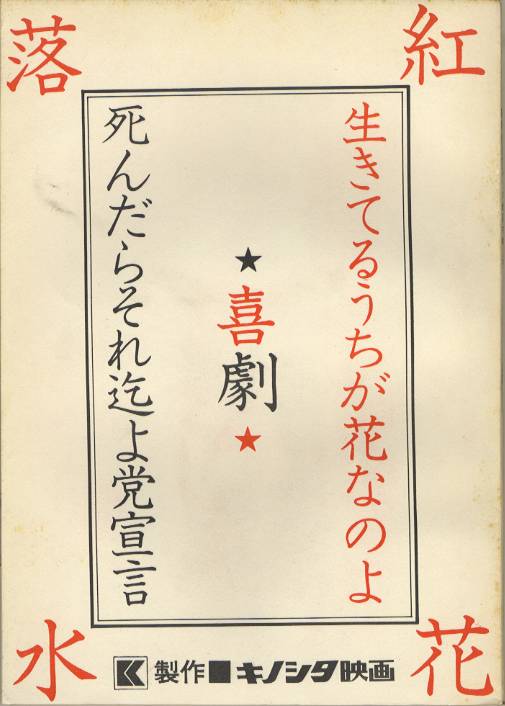 紅花
落水
生きてるうちが花なのよ
★喜劇★
死んだらそれ迄よ党宣言
K 製作■キノシタ映画